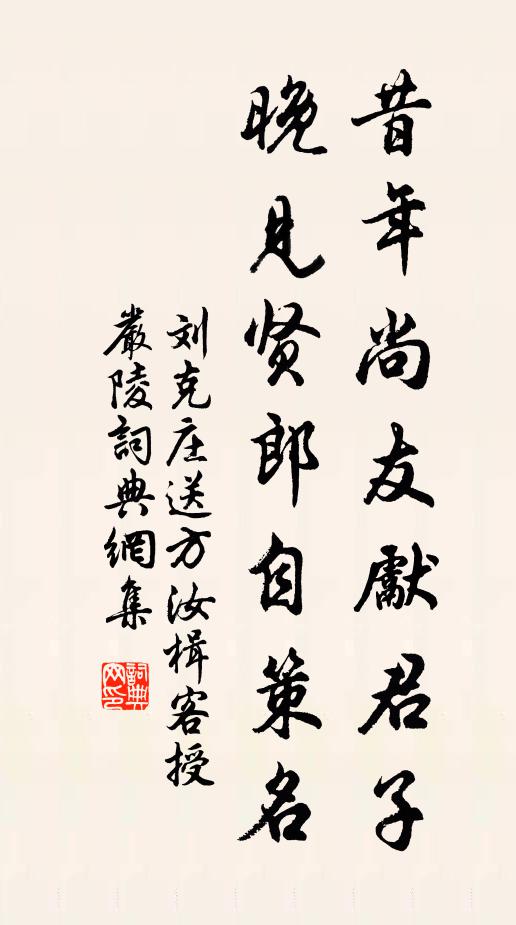 昔年尚友獻君子
晚见贤郎自策名
刘克庄送方汝楫客授
嚴陵詞典網集
詞典网印